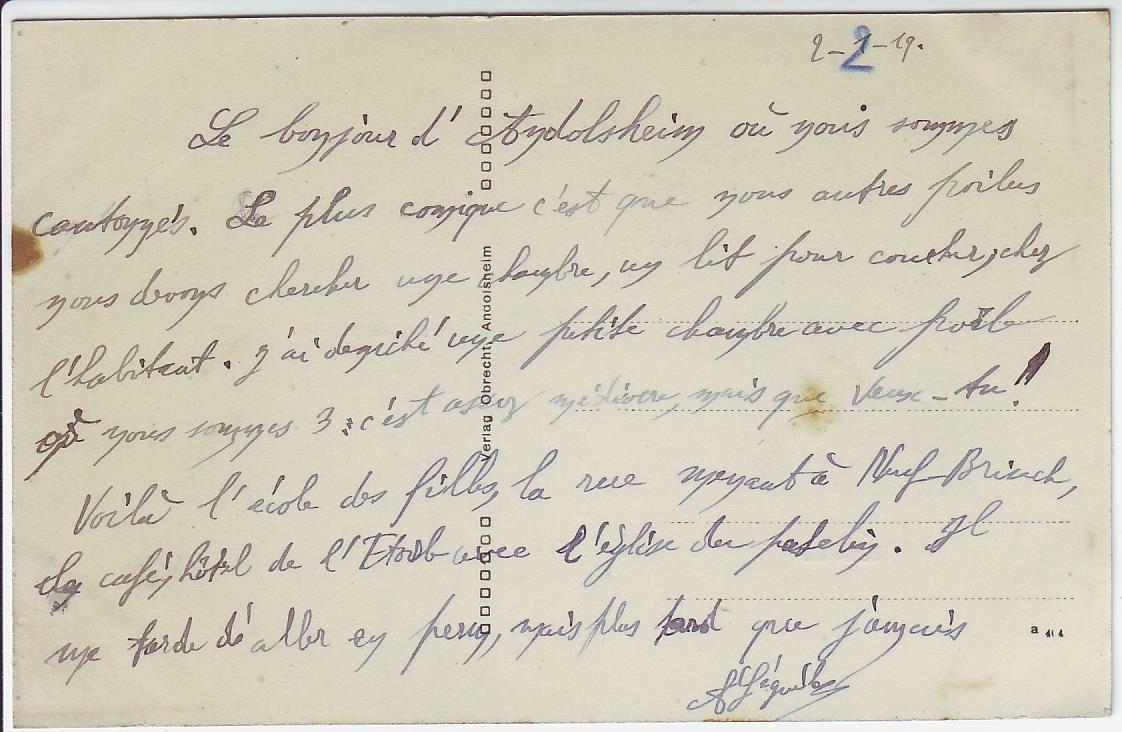 2-2-19.
Le bonjour d'Andolsheim où nous sommes
cantonnés. Le plus comique c'est que nous autres poilus
nous devons chercher une chambre, un lit pour coucher, chez
l'habitant. J'ai déniché une petite chambre avec poële
où nous sommes 3 : c'est assez médiocre, mais que veux-tu !
Voilà l'école des filles, la rue menant à Neuf-Brisach,
café, hôtel de l'Etoile avec l'église du patelin. Il
me tarde d'aller en perm, mais plus tard que jamais
Verlag Obrecht Andolsheim
a 414